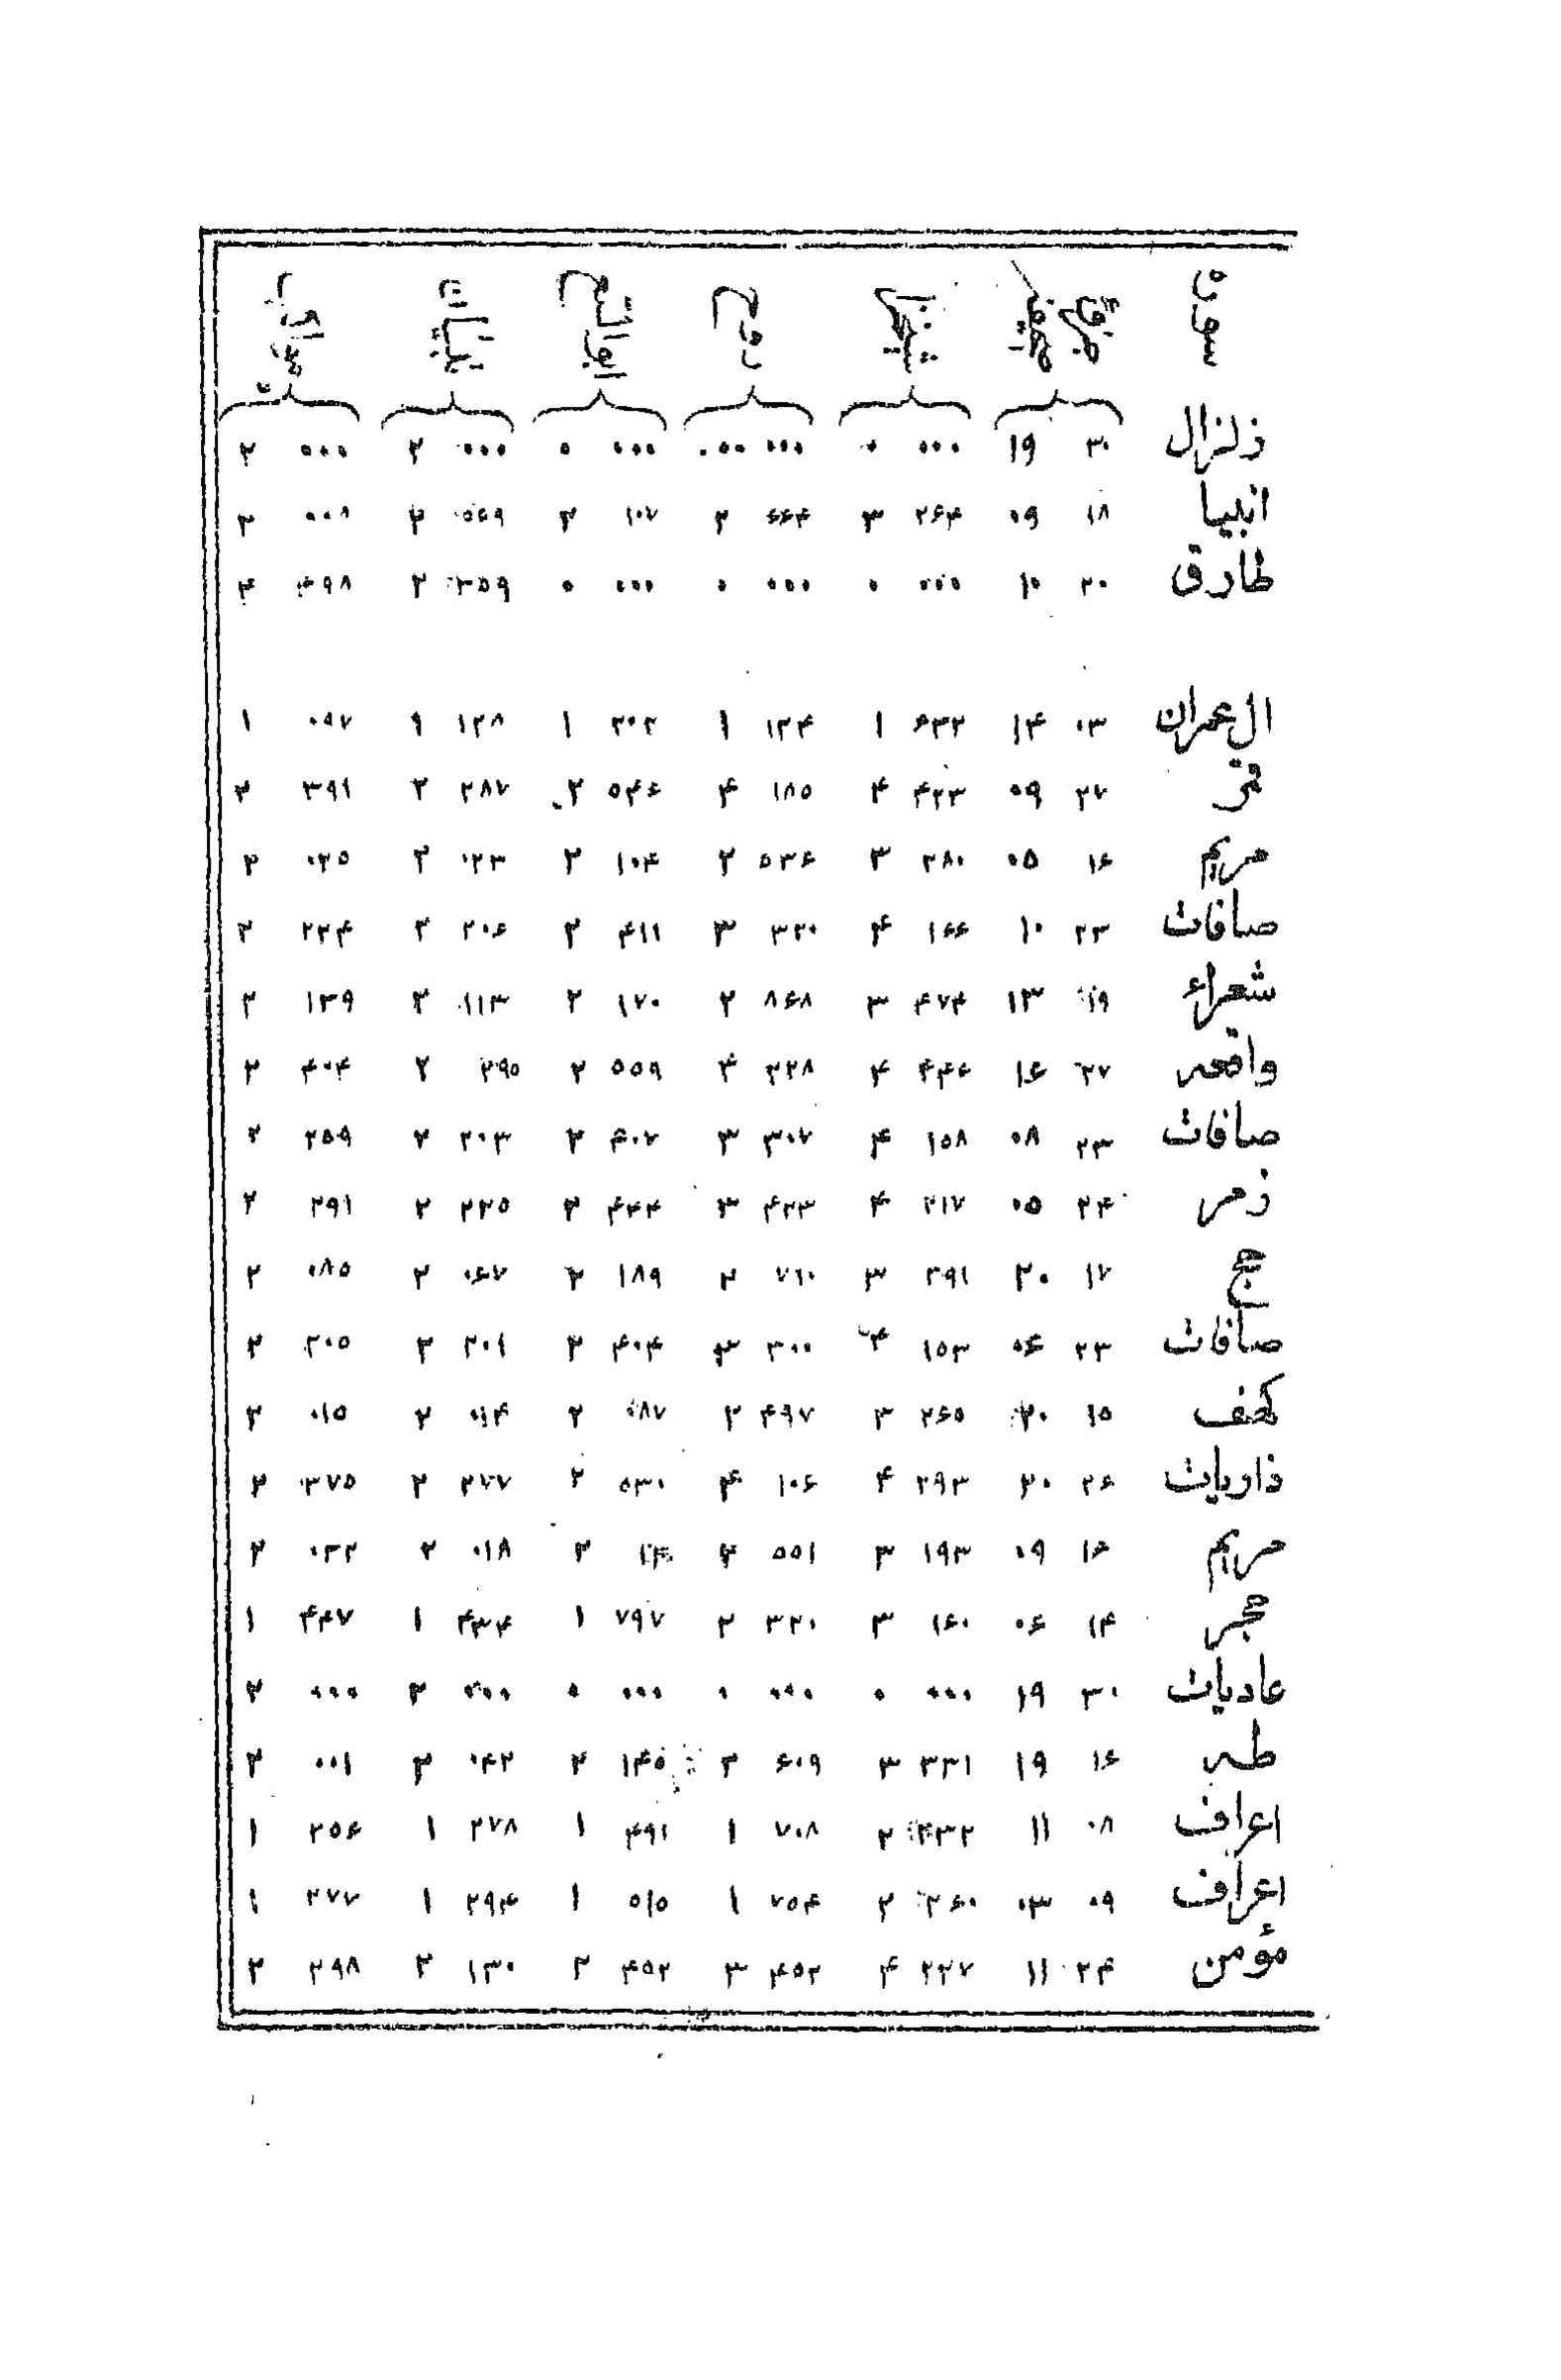 سوره
زلزال ۳۰ ۱۹ ۰۰۰ ۰ ۰۰۰ ۰۰۰ ۰۰۰ ۰ ۰۰۰ ۲ ۰۰۰ ۲
انبیا ۱۸ ۰۹ ۲۶۴ ۳ ۶۶۴ ۲ ۱۰۷ ۲ ۰۵۶۹ ۲ ۰۰۸ ۲
طارق ۳۰ ۱۰ ۰۰۰ ۰ ۰۰۰ ۰ ۰۰۰ ۰ ۳۵۹ ۲ ۴۹۸ ۲
ال عمران ۰۳ ۱۴ ۶۳۲ ۱ ۱۲۴ ۱ ۲۰۲ ۱ ۱۲۸ ۱ ۰۹۷ ۱
قمر ۲۷ ۰۹ ۴۲۳ ۴ ۱۸۵ ۴ ۵۴۶ ۲ ۲۸۷ ۲ ۳۹۱ ۲
مریم ۱۶ ۰۵ ۲۸۰ ۳ ۵۳۶ ۲ ۱۰۴ ۲ ۰۲۳ ۲ ۰۲۵ ۲
صافات ۲۳ ۱۰ ۱۶۶ ۴ ۳۲۰ ۳ ۴۱۱ ۲ ۲۰۶ ۲ ۲۳۴ ۲
شعراء ۱۹ ۱۳ ۴۷۴ ۳ ۸۶۸ ۲ ۱۷۰ ۲ ۱۱۳ ۲ ۱۳۹ ۲
واقعه ۲۷ ۱۶ ۴۴۶ ۴ ۲۲۸ ۴ ۵۵۹ ۲ ۲۹۵ ۲ ۴۰۴ ۲
صافات ۲۳ ۰۸ ۱۵۸ ۴ ۳۰۷ ۳ ۴۰۷ ۲ ۲۰۳ ۲ ۲۵۹ ۲
زمر ۲۴ ۰۵ ۲۱۷ ۴ ۴۲۳ ۳ ۴۴۴ ۲ ۲۲۵ ۲ ۲۹۱ ۲
حج ۱۷ ۲۰ ۳۹۱ ۳ ۷۶۰ ۲ ۱۸۹ ۲ ۰۶۷ ۲ ۰۸۵ ۲
صافات ۲۳ ۰۶ ۱۵۳ ۴ ۳۰۰ ۳ ۴۰۴ ۲ ۲۰۱ ۲ ۲۰۵ ۲
کهف ۱۵ ۲۰ ۲۶۵ ۳ ۴۹۷ ۲ ۰۸۷ ۲ ۰۱۴ ۲ ۰۱۵ ۲
ذاریات ۲۶ ۲۰ ۳۹۳ ۴ ۱۰۶ ۴ ۵۳۰ ۲ ۲۷۷ ۲ ۳۷۵ ۲
مریم ۱۶ ۰۹ ۱۹۳ ۳ ۵۵۱ ۲ ۲ ۰۱۸ ۲ ۰۳۲ ۲
حجر ۱۴ ۰۶ ۱۶۰ ۳ ۳۲۰ ۲ ۷۹۷ ۱ ۴۳۴ ۱ ۴۴۷ ۱
عادیات ۳۰ ۱۹ ۰۰۰ ۰ ۰۰۰ ۰ ۰۰۰ ۰ ۰۰۰ ۲ ۰۰۰ ۲
طه ۱۶ ۱۹ ۳۳۱ ۳ ۶۰۹ ۲ ۱۴۵ ۲ ۰۴۲ ۲ ۰۰۱ ۲
اعراف ۰۸ ۱۱ ۲۳۲ ۲ ۷۰۸ ۱ ۴۹۱ ۱ ۲۷۸ ۱ ۲۵۶ ۱
اعراف ۰۹ ۰۳ ۲۶۰ ۲ ۷۵۴ ۱ ۵۱۵ ۱ ۲۹۴ ۱ ۲۷۷ ۱
مؤمن ۲۴ ۱۱ ۲۲۷ ۴ ۴۵۲ ۳ ۴۵۲ ۲ ۱۳۰ ۲ ۲۹۸ ۲